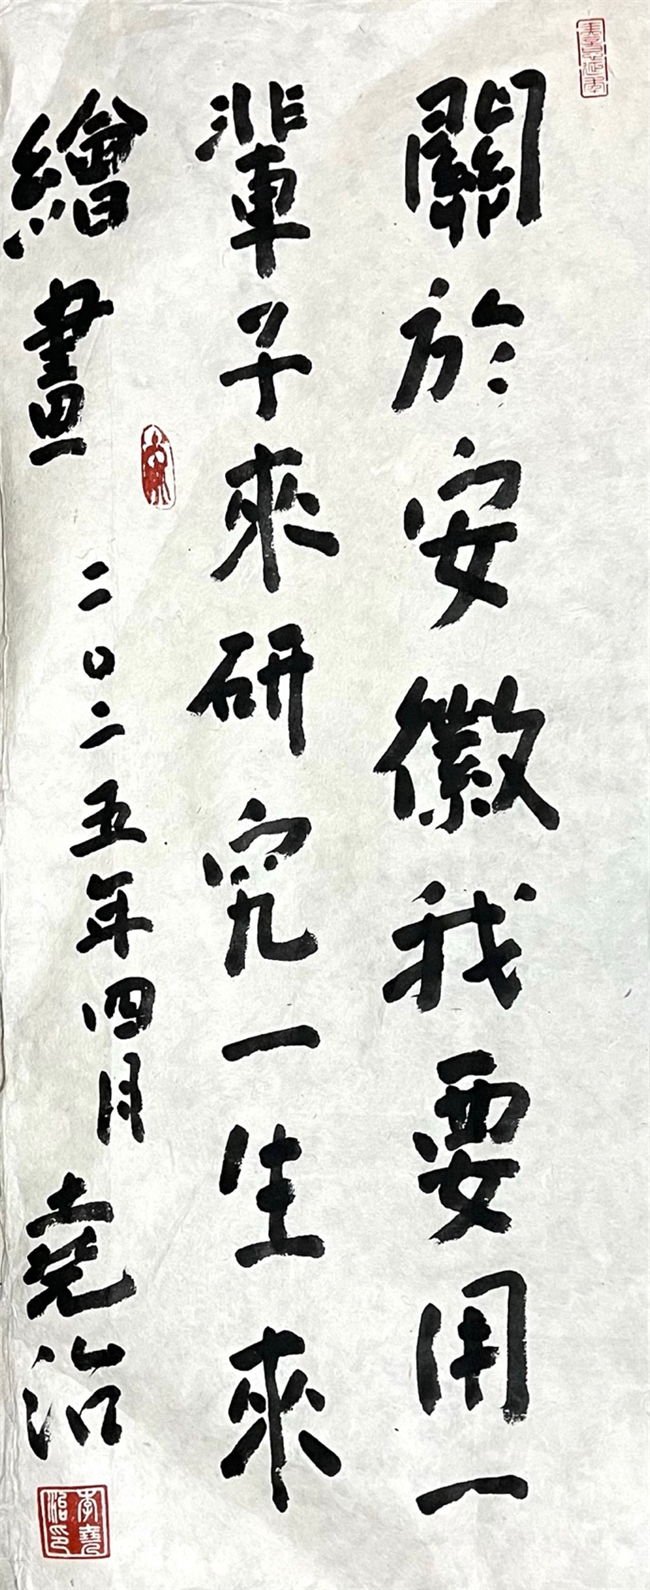 關於安徽我要用一
輩子來研究一生來
繪畫
二〇二五年四月
堯治
李堯治印